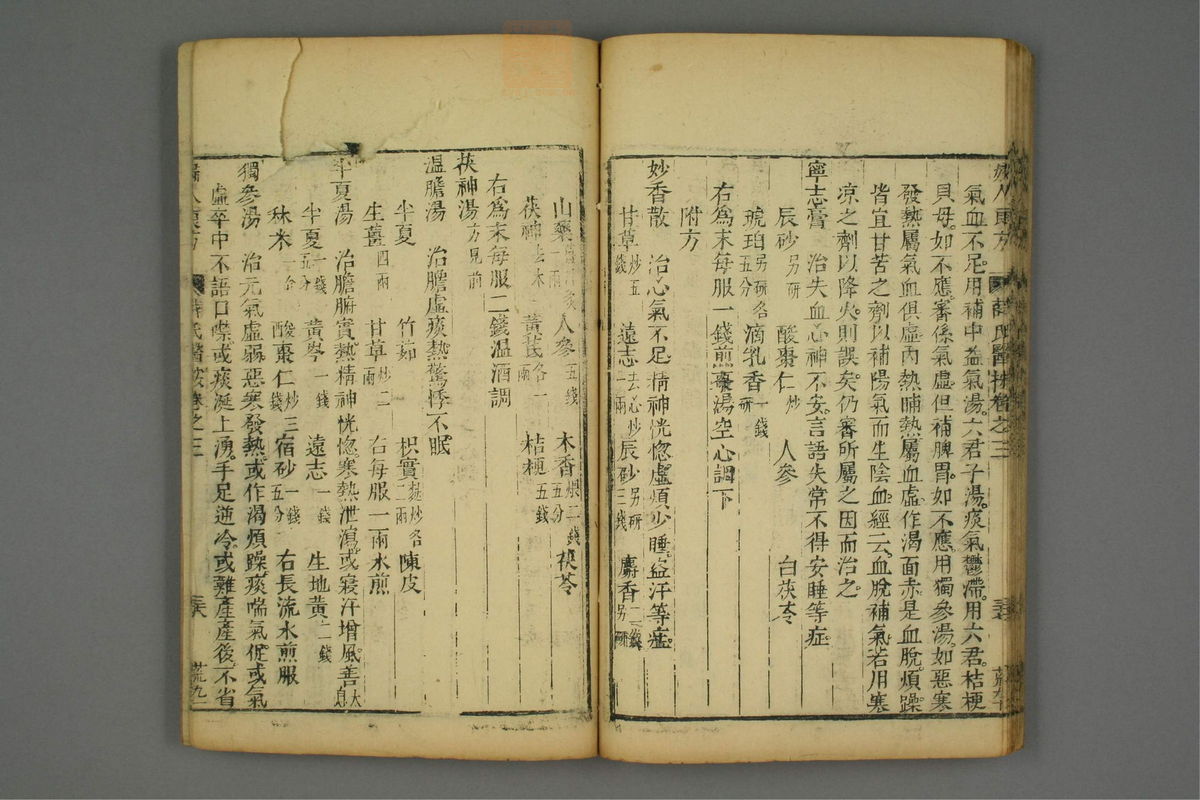 氣血不足。用補中益氣湯。六君子湯。痰氣鬱滯。用六君。桔梗
貝母。如不應。審係氣虛但補脾胃。如不應。用獨參湯。如惡寒
發熱屬氣血俱虛內熱晡熱屬血虛作渴面赤是血脫。煩躁
皆宜甘苦之劑以補陽氣而生陰血。經云。血脫補氣。若用寒
凉之劑以降火。則誤矣。仍審所屬之因而治之。
寧志膏 治失血心神不安。言語失常不得安睡等症。
辰砂另研 酸棗仁炒 人參 白茯苓
琥珀另研各五分 滴乳香一錢研
右爲末每服一錢煎棗湯空心調下
附方
妙香散 治心氣不足。精神恍惚虛煩少睡。盜汗等症。
甘草炒五錢 遠志去心炒一兩 辰砂另研三錢 麝香二錢另研
山藥 人參五錢 木香煨二錢五分 茯苓
茯神去木 黃芪各一兩 桔梗五錢
右爲末每服二錢温酒調
茯神湯方見前
温膽湯 治膽虛痰熱。驚悸不眠
半夏 竹茹 枳實麩炒各二兩 陳皮
生薑四兩 甘草炒二兩 右每服一兩水煎
半夏湯 治膽腑實熱。精神恍惚。寒熱泄瀉。或寢汗增風。善大息
半夏一錢五分 黃芩一錢 遠志一錢 生地黃二錢
秫米一合 酸棗仁炒三錢 宿砂一錢五分 右長流水煎服
獨參湯 治元氣虛弱。惡寒發熱。或作渴煩躁。痰喘氣促。或氣
虛卒中不語口噤。或痰涎上湧。手足逆冷。或難產產後。不省
薛氏醫按卷之三 三六 荒九一